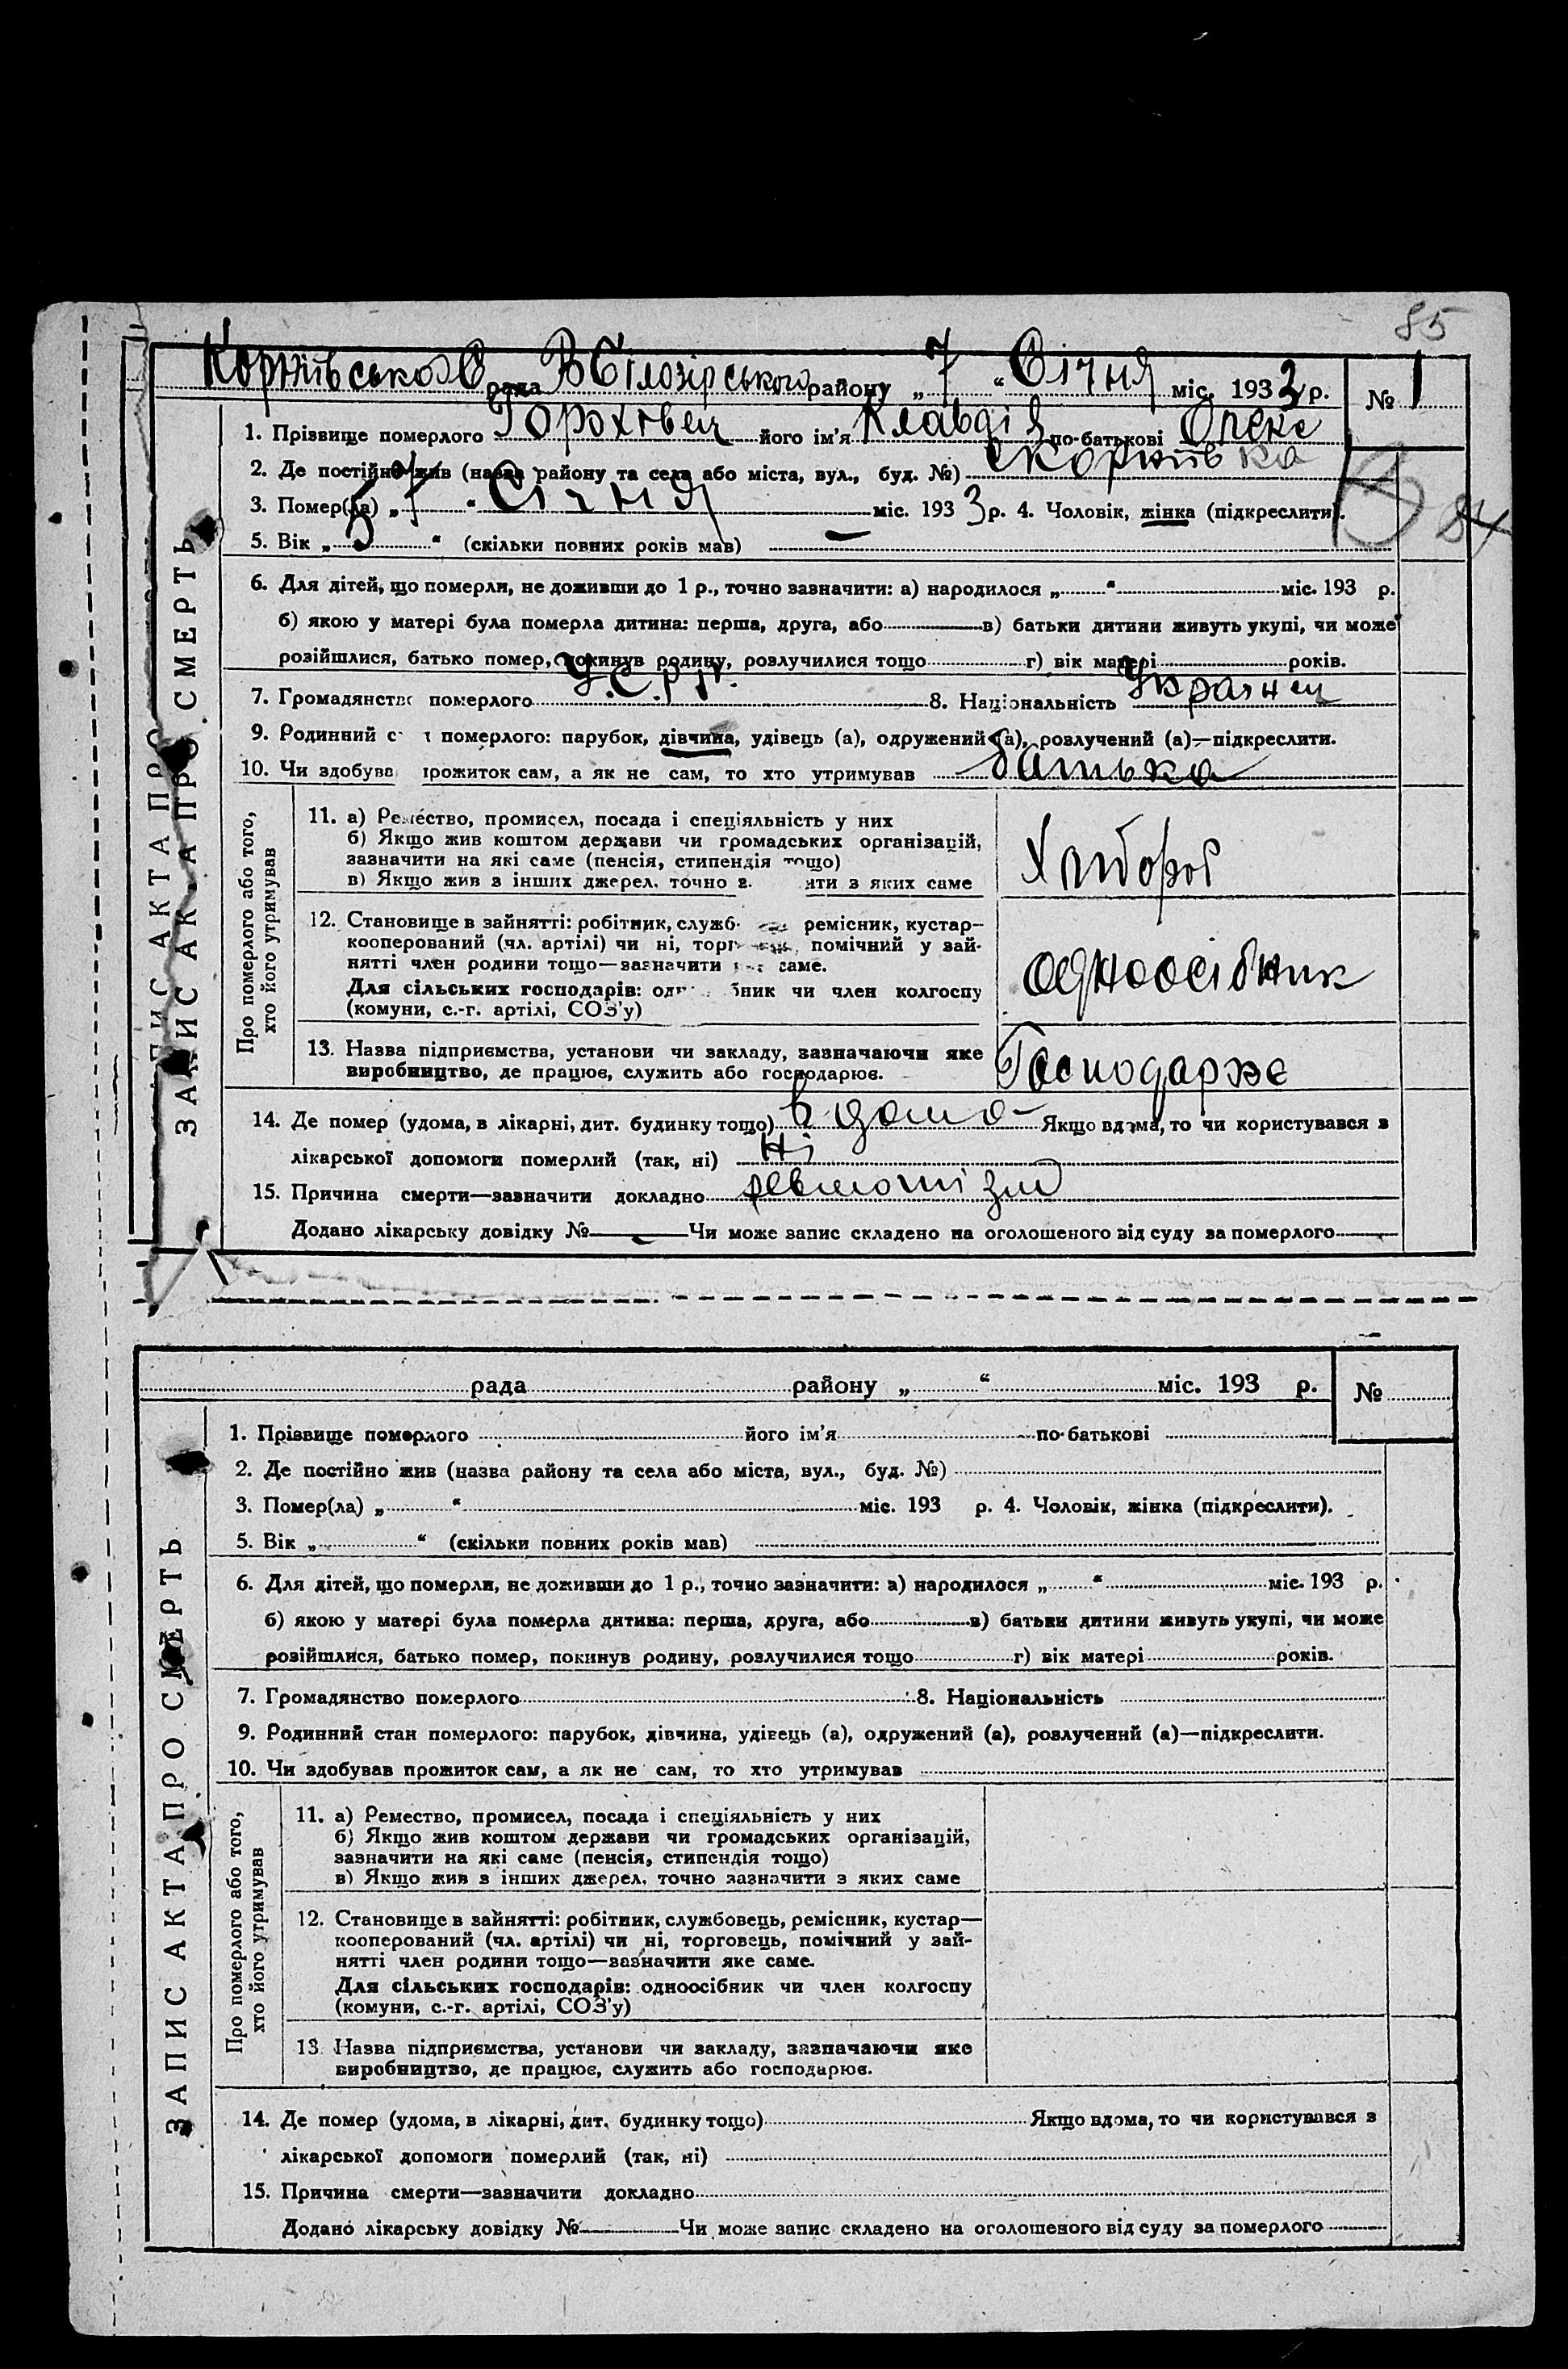 85
Корніївсько рада В Білозірського району „ 7 “ Січня міс. 1933 р. № 1
1. Прізвище померлого Горохівец його ім’я Клавдія по-батькові Олекс
2. Де постійно жив (назва району та села або міста, вул., буд. №) с Корніївка
3. Помер(ла) „ 7 “ Січня міс. 193 3 р. 4. Чоловік, жінка (підкреслити).
84
5. Вік „ 5 “ (скільки повних років мав) —
6. Для дітей, що померли, не доживши до 1 р., точно зазначити: а) народилося „ “ міс. 193 р.
б) якою у матері була померла дитина: перша, друга, або в) батьки дитини живуть укупі, чи може
розійшлися, батько помер, покинув родину, розлучилися тощо г) вік матері років.
7. Громадянство померлого У.С.Р.Р. 8. Національність Українец
9. Родинний с т померлого: парубок, дівчина, удівець (а), одружений (а), розлучений (а)—підкреслити.
10. Чи здобува прожиток сам, а як не сам, то хто утримував батька
Про померлого або того, хто його утримував
11. а) Ремество, промисел, посада і спеціяльність у них
б) Якщо жив коштом держави чи громадських організацій,
зазначити на які саме (пенсія, стипендія тощо)
в) Якщо жив з інших джерел, точно з яти з яких саме
Хлібороб
12. Становище в зайнятті: робітник, служб ремісник, кустар—
кооперований (чл. артілі) чи ні, торг помічний у зай-
нятті член родини тощо—зазначити саме.
Для сільських господарів: од бник чи член колгоспу
(комуни, с.-г. артілі, СОЗ’у)
одноосібник
13. Назва підприємства, установи чи закладу, зазначаючи яке
виробництво, де працює, служить або господарює.
Господарює
14. Де помер (удома, в лікарні, дит. будинку тощо) в дома Якщо вдома, то чи користувався з
лікарської допомоги померлий (так, ні) Ні
15. Причина смерти—зазначити докладно ревматізм
Додано лікарську довідку № — Чи може запис складено на оголошеного від суду за померлого
ЗАПИС АКТА ПРО СМЕРТЬ
рада району „ “ міс. 193 р. №
1. Прізвище померлого його ім’я по-батькові
2. Де постійно жив (назва району та села або міста, вул., буд. №)
3. Помер(ла) „ “ міс. 193 р. 4. Чоловік, жінка (підкреслити).
5. Вік „ “ (скільки повних років мав)
6. Для дітей, що померли, не доживши до 1 р., точно зазначити: а) народилося „ “ міс. 193 р.
б) якою у матері була померла дитина: перша, друга, або в) батьки дитини живуть укупі, чи може
розійшлися, батько помер, покинув родину, розлучилися тощо г) вік матері років.
7. Громадянство померлого 8. Національність
9. Родинний стан померлого: парубок, дівчина, удівець (а), одружений (а), розлучений (а)—підкреслити.
10. Чи здобував прожиток сам, а як не сам, то хто утримував
Про померлого або того, хто його утримував
11. а) Ремество, промисел, посада і спеціяльність у них
б) Якщо жив коштом держави чи громадських організацій,
зазначити на які саме (пенсія, стипендія тощо)
в) Якщо жив з інших джерел, точно зазначити з яких саме
12. Становище в зайнятті: робітник, службовець, ремісник, кустар—
кооперований (чл. артілі) чи ні, торговець, помічний у зай-
нятті член родини тощо—зазначити яке саме.
Для сільських господарів: одноосібник чи член колгоспу
(комуни, с.-г. артілі, СОЗ’у)
13. Назва підприємства, установи чи закладу, зазначаючи яке
виробництво, де працює, служить або господарює.
14. Де помер (удома, в лікарні, дит. будинку тощо) Якщо вдома, то чи користувався з
лікарської допомоги померлий (так, ні)
15. Причина смерти—зазначити докладно
Додано лікарську довідку № Чи може запис складено на оголошеного від суду за померлого
ЗАПИС АКТА ПРО СМЕРТЬ